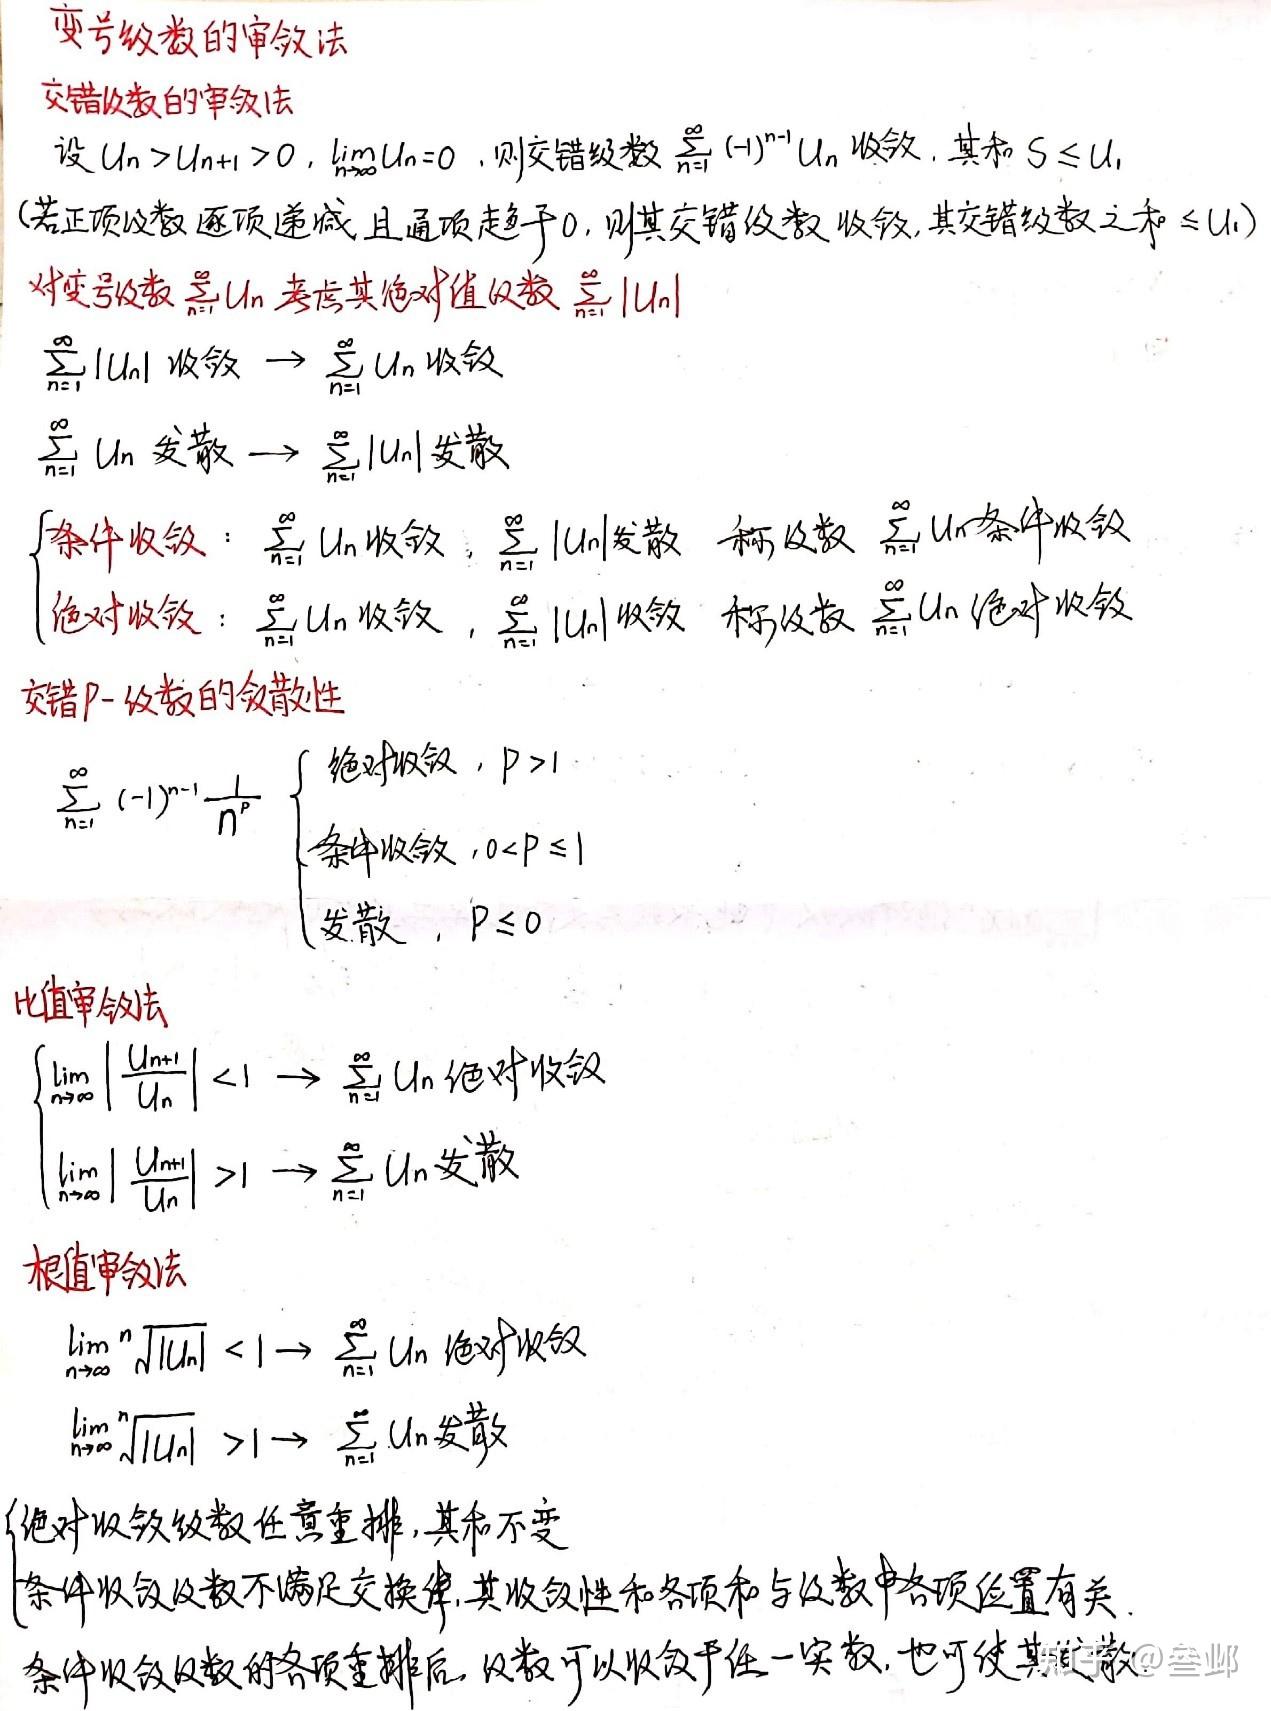 变号级数的审敛法
交错级数的审敛法
设 Un>Un+1>0, lim n→∞ Un=0, 则交错级数 ∑ n=1 ∞ (-1)ⁿ⁻¹ Un 收敛, 其和 S≤U₁
(若正项级数逐项递减且通项趋于0, 则其交错级数收敛, 其交错级数之和≤U₁)
对变号级数 ∑ n=1 ∞ Un 考虑其绝对值级数 ∑ n=1 ∞ |Un|
∑ n=1 ∞ |Un| 收敛 → ∑ n=1 ∞ Un 收敛
∑ n=1 ∞ Un 发散 → ∑ n=1 ∞ |Un| 发散
条件收敛: ∑ n=1 ∞ Un 收敛, ∑ n=1 ∞ |Un| 发散 称级数 ∑ n=1 ∞ Un 条件收敛
绝对收敛: ∑ n=1 ∞ Un 收敛, ∑ n=1 ∞ |Un| 收敛 称级数 ∑ n=1 ∞ Un 绝对收敛
交错P-级数的敛散性
绝对收敛, P>1
∑ n=1 ∞ (-1)ⁿ⁻¹ 1/nᴾ
条件收敛, 0<P≤1
发散, P≤0
比值审敛法
lim n→∞ |Un+1/Un| <1 → ∑ n=1 ∞ Un 绝对收敛
lim n→∞ |Un+1/Un| >1 → ∑ n=1 ∞ Un 发散
根值审敛法
lim n→∞ ⁿ√|Un| <1 → ∑ n=1 ∞ Un 绝对收敛
lim n→∞ ⁿ√|Un| >1 → ∑ n=1 ∞ Un 发散
绝对收敛级数任意重排, 其和不变
条件收敛级数不满足交换律, 其收敛性和各项和与级数中各项位置有关.
条件收敛级数的各项重排后, 级数可以收敛于任一实数, 也可使其发散.
知乎 @叁邺